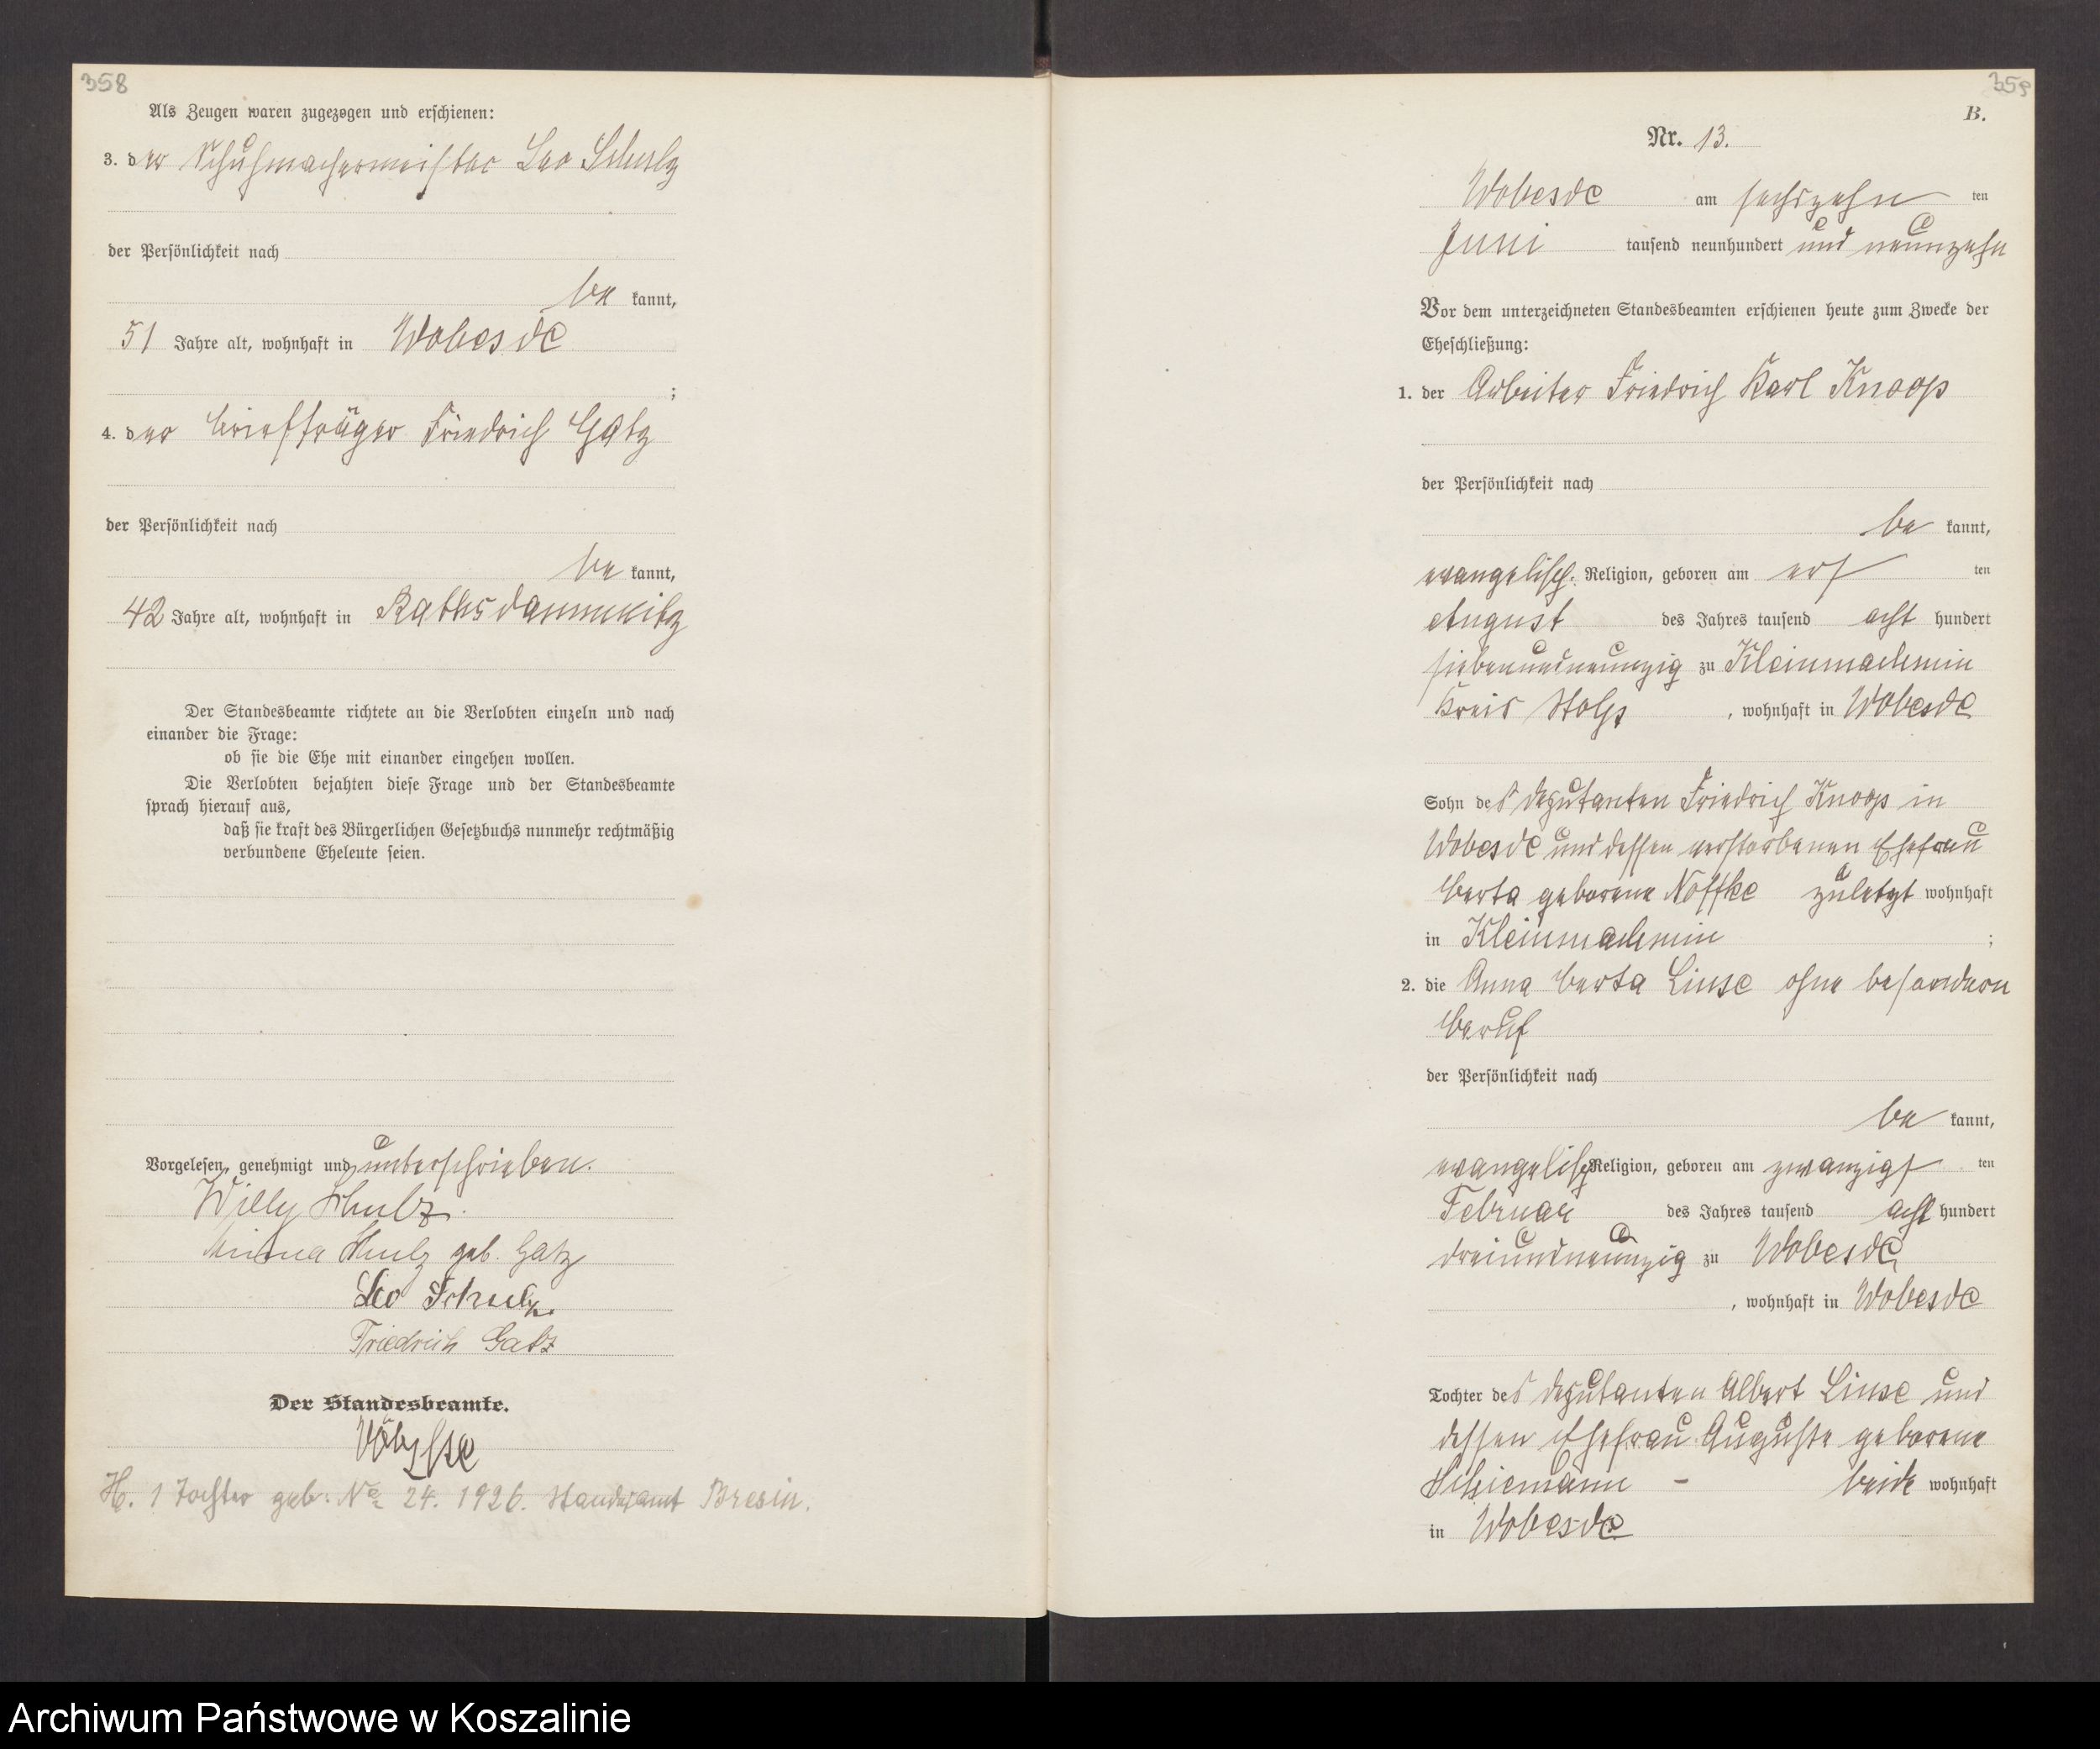 358
Als Zeugen waren zugezogen und erschienen:
3. der Schuhmachermeister Leo Schulz
der Persönlichkeit nach
be kannt,
51 Jahre alt, wohnhaft in Wobesde
;
4. der Briefträger Friedrich Gatz
der Persönlichkeit nach
be kannt,
42 Jahre alt, wohnhaft in Rathsdamnitz
Der Standesbeamte richtete an die Verlobten einzeln und nach
einander die Frage:
ob sie die Ehe mit einander eingehen wollen.
Die Verlobten bejahten diese Frage und der Standesbeamte
sprach hierauf aus,
daß sie kraft des Bürgerlichen Gesetzbuchs nunmehr rechtmäßig
verbundene Eheleute seien.
Vorgelesen, genehmigt und unterschrieben.
Willy Schulz.
Minna Schulz geb. Gatz
Leo Schulz.
Friedrich Gatz
Der Standesbeamte.
H. 1 Tochter geb: No 24. 1926. Standesamt Bresin.
359
B.
Nr. 13.
Wobesde am sechszehn ten
Juni tausend neunhundert und neunzehn
Vor dem unterzeichneten Standesbeamten erschienen heute zum Zwecke der
Eheschließung:
1. der Arbeiter Friedrich Karl Knoop
der Persönlichkeit nach
be kannt,
evangelisch. Religion, geboren am ers ten
August des Jahres tausend acht hundert
siebenundneunzig zu Kleinmachmin
Kreis Stolp, wohnhaft in Wobesde
Sohn des Deputanten Friedrich Knoop in
Wobesde und dessen verstorbenen Ehefrau
Berta geborene Noffke zuletzt wohnhaft
in Kleinmachmin ;
2. die Anna Berta Linse ohne besondern
Beruf
der Persönlichkeit nach
be kannt,
evangelisch Religion, geboren am zwanzigs ten
Februar des Jahres tausend acht hundert
dreiundneunzig zu Wobesde
, wohnhaft in Wobesde
Tochter des Deputanten Albert Linse und
dessen Ehefrau Auguste geborene
Schiemann - beide wohnhaft
in Wobesde
Archiwum Państwowe w Koszalinie